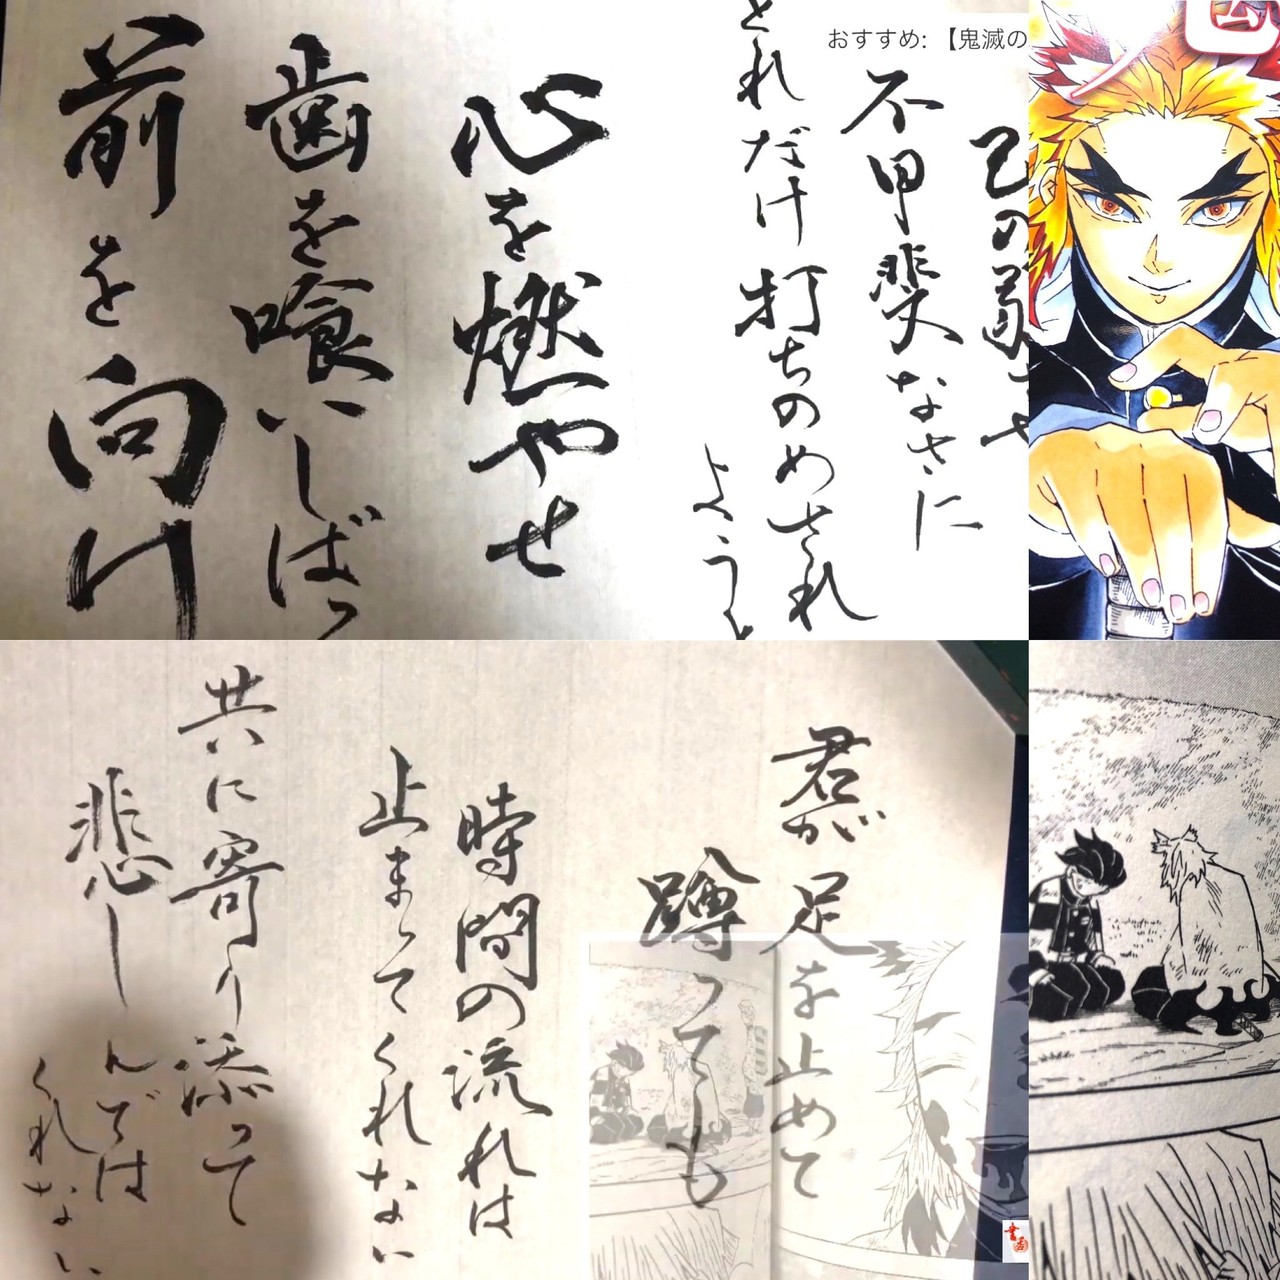 おすすめ: 【鬼滅の
己の弱さや
不甲斐なさに
どれだけ打ちのめされ
ようと
心を燃やせ
歯を喰いしばっ
前を向け
君が足を止めて
蹲っても
時間の流れは
止まってくれない
共に寄り添って
悲しんでは
くれない